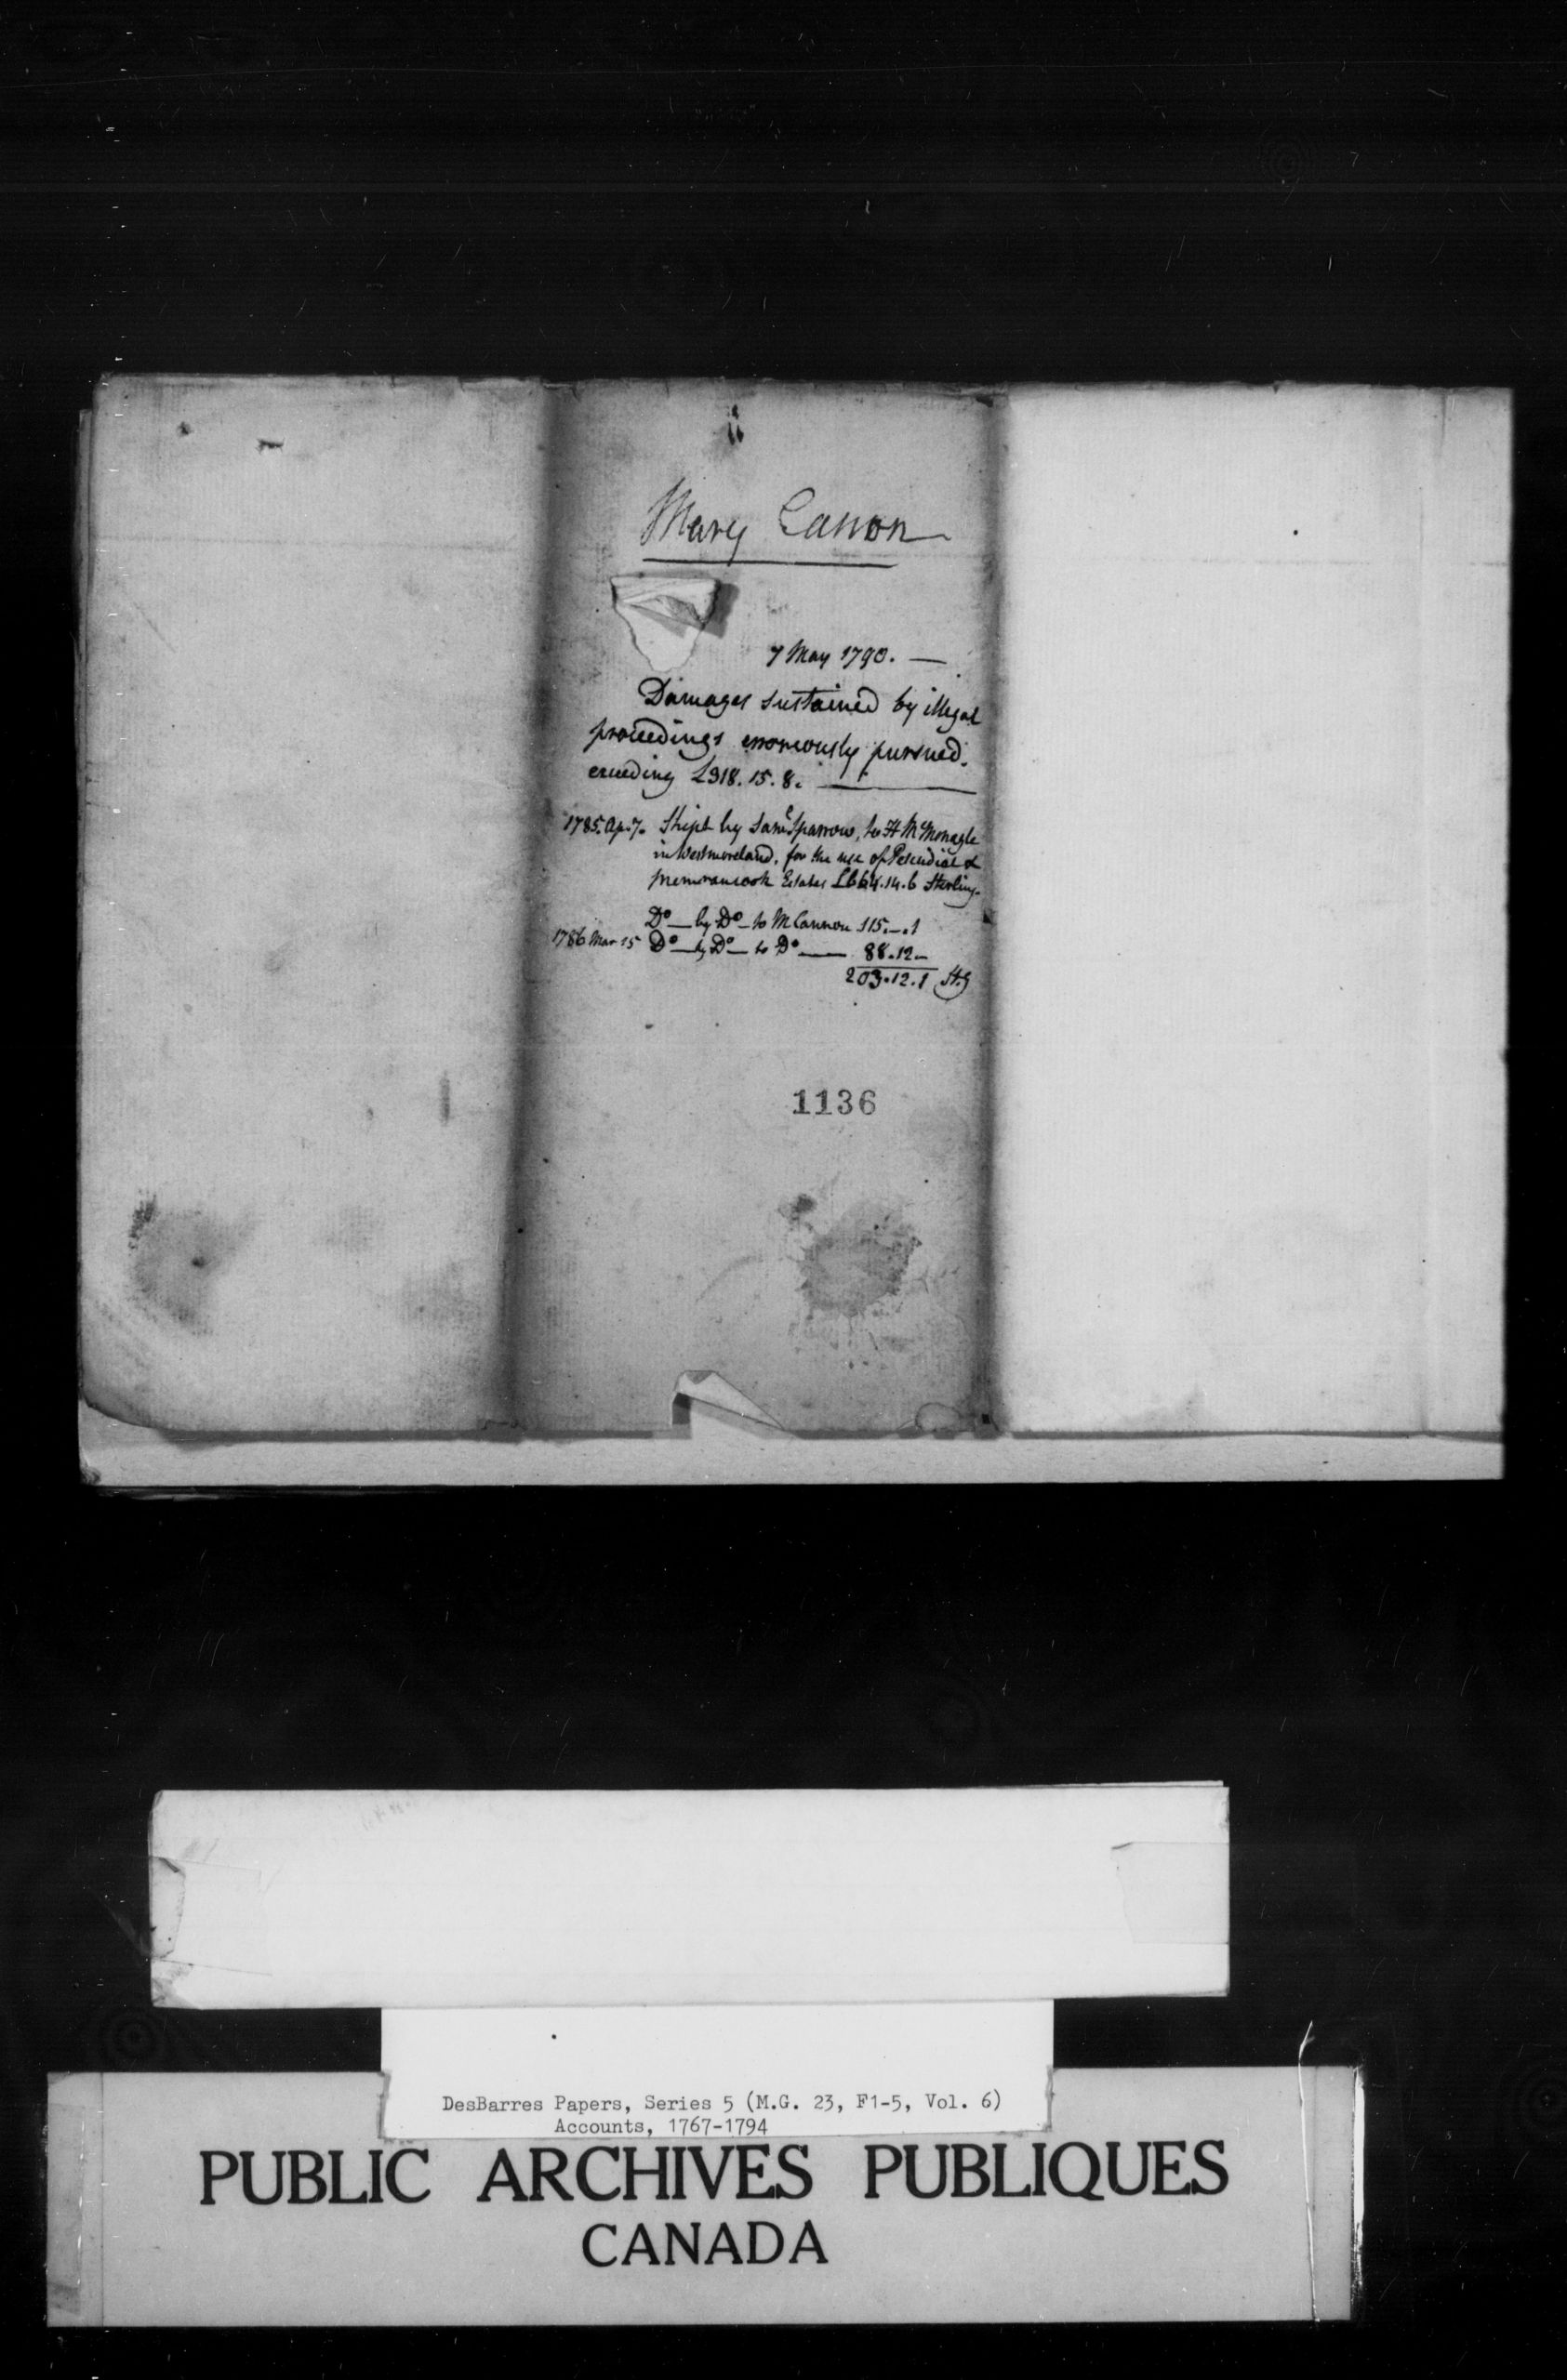 Mary Cannon
7 May 1790. —
Damages sustained by illegal
proceedings erroneously pursued.
exceeding £318. 15. 8. —
1785. Ap. 7. Shipt by Saml Sparrow, to H McMonagle
in Westmoreland, for the use of &
Memramcook Estates £664. 14. 6 Sterling.
Do — by Do — to M Cannon 115. —. 1
1786 Mar 15 Do — by Do — to Do — 88. 12 —
203. 12. 1 Stg
1136
DesBarres Papers, Series 5 (M.G. 23, F1-5, Vol. 6)
Accounts, 1767-1794
PUBLIC ARCHIVES PUBLIQUES
CANADA